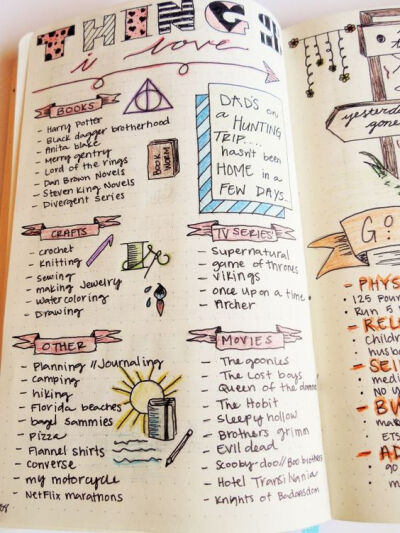 THINGS
i love
BOOKS
- Harry Potter
- Black dagger brotherhood
- Anita blake
- Merry gentry
- Lord of the rings
- Dan Brown Novels
- Steven King Novels
- Divergent series
BOOK WORM
DAD'S on
a HUNTING
TRIP....
hasn't been
HOME in a
FEW DAYS....
CRAFTS
- crochet
- Knitting
- sewing
- making Jewelry
- watercoloring
- Drawing
TV SERIES
- Supernatural
- game of thrones
- vikings
- once upon a time
- Archer
OTHER
- Planning // Journaling
- camping
- hiking
- Florida beaches
- bagel sammies
- Pizza
- Flannel shirts
- converse
- my motorcycle
- Netflix marathons
MOVIES
- The goonies
- The Lost boys
- Queen of the damned
- The Hobit
- Sleepy hollow
- Brothers grimm
- Evil dead
- Scooby-doo // Boo brothers
- Hotel Transilvania
- Knights of Badassdom
yesterday
gone
GO
- PHYS
125 pour
Run 5
- RELA
Childre
husb
- SEL
medi
NO
- BU
mak
ETS
- AD
go